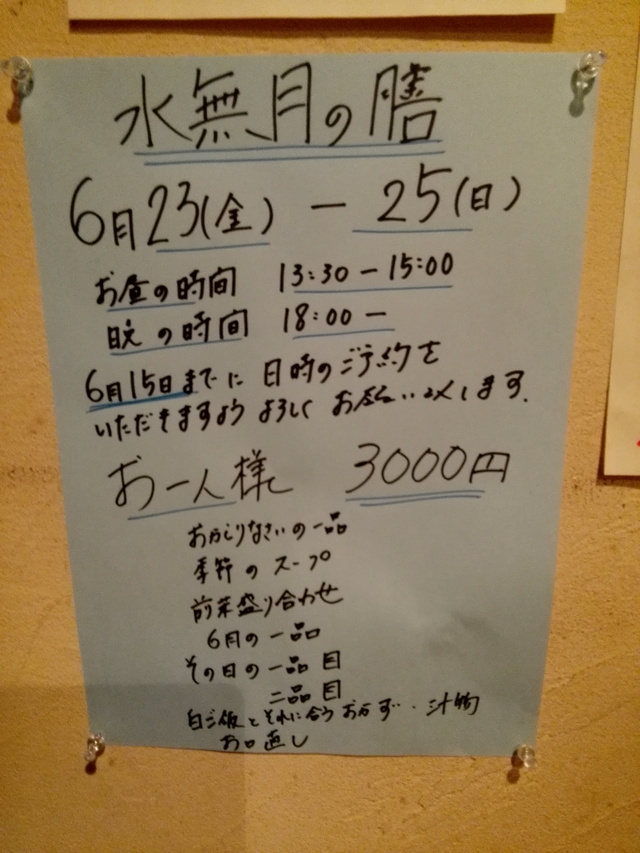 水無月の膳
6月23(金) ― 25(日)
お昼の時間 13:30 ― 15:00
晩の時間 18:00 ―
6月15日までに 日時のご予約を
いただきますよう よろしく お願いいたします.
お一人様 3000円
おかえりなさいの一品
季節のスープ
前菜盛り合わせ
6月の一品
その日の一品目
二品目
白ご飯とそれに合うおかず・汁物
お口直し